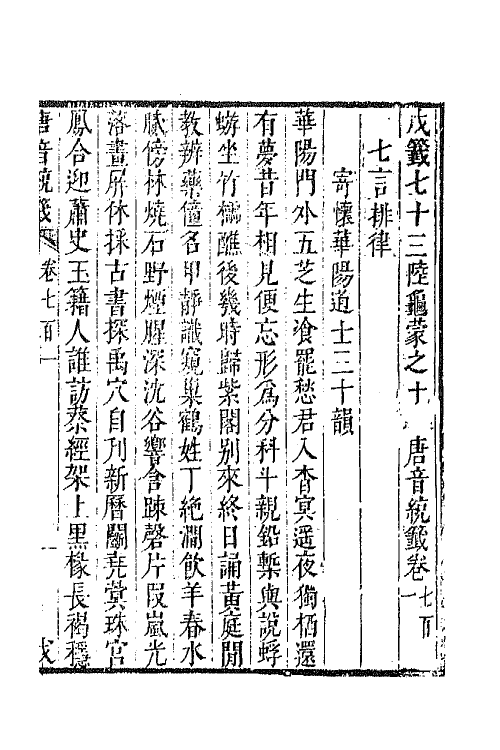 戊籤七十三陸龜蒙之十　唐音統籤卷七百一
七言排律
寄懷華陽道士三十韻
華陽門外五芝生飡罷愁君入杳冥遥夜獨棲還
有夢昔年相見便忘形爲分科斗親鉛槧與說蜉
蝣坐竹楹醮後幾時歸紫閣别來終日誦黃庭閒
教辨藥僮名甲靜識窺巢鶴姓丁絶澗飲羊春水
膩傍林燒石野煙腥深沈谷響含踈磬片段嵐光
落畫屛休採古書探禹穴自刋新曆鬭堯蓂珠宮
鳳合迎蕭史玉籍人誰訪蔡經架上黑椽長褐穩
唐音統籤　戊　卷七百一　一　戊